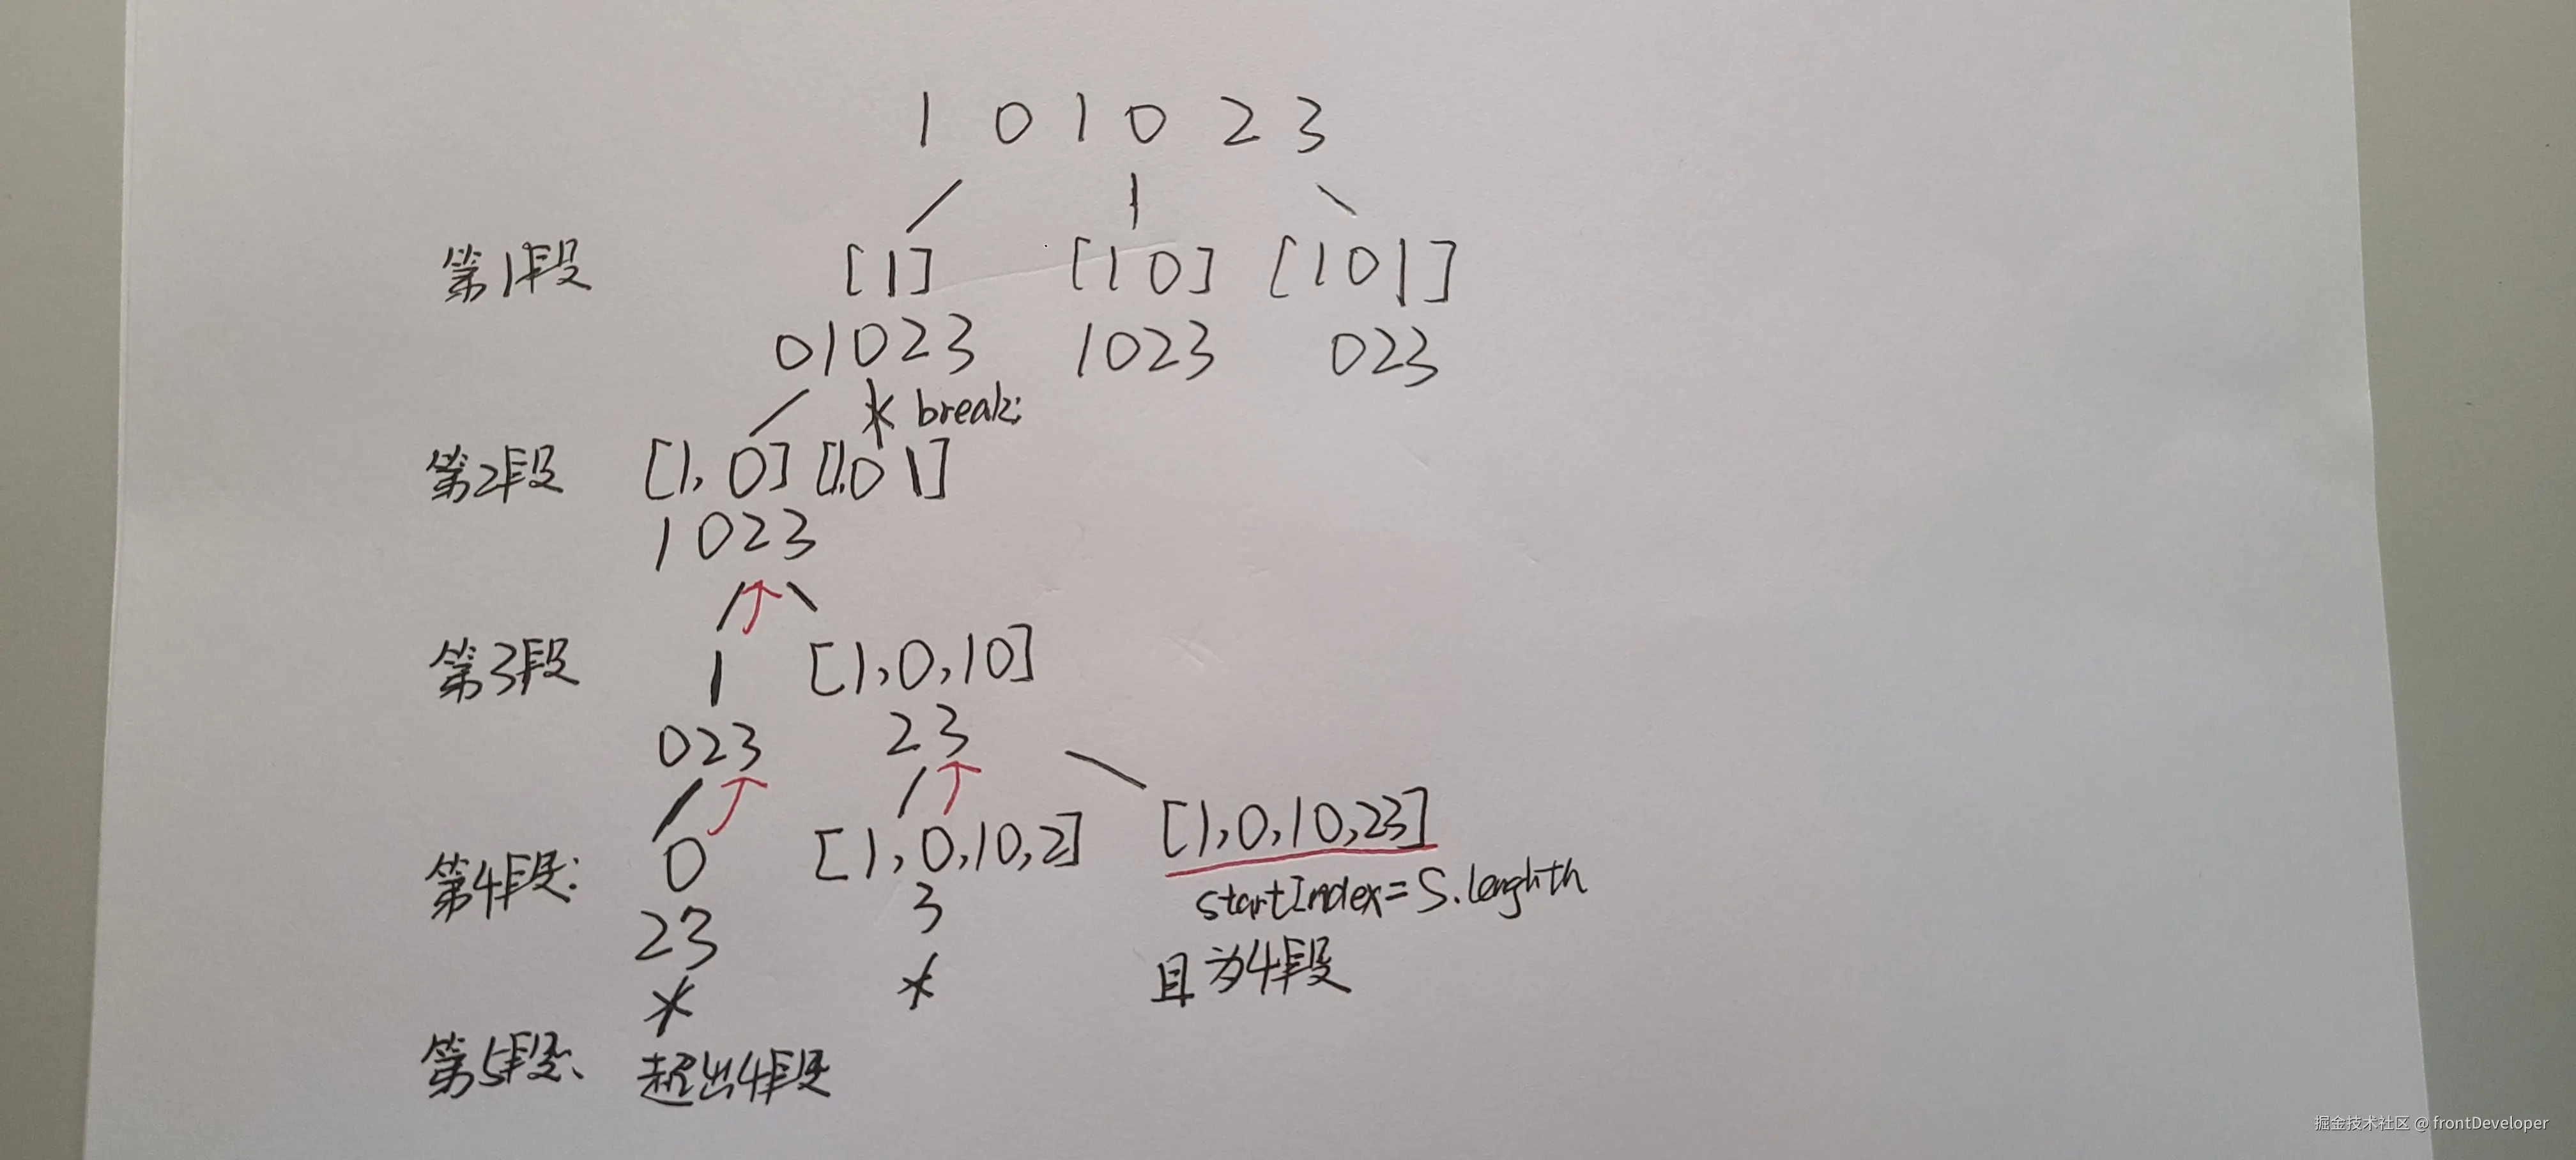 1 0 1 0 2 3
第1段 [1] [1 0] [1 0 1]
01023 1023 023
* break;
第2段 [1, 0] [1,0 1]
1023
第3段 1 [1,0,10]
023 23
第4段: 0 [1,0,10,2] [1,0,10,23]
23 3 startIndex=S.lenghth
* * 且为4段
第5段、 超出4段
掘金技术社区 @ frontDeveloper